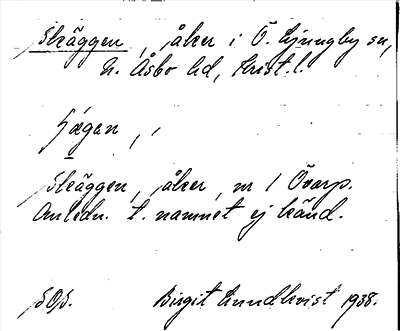 Skäggen, åker i Ö. Ljungby sn,
N. Åsbo hd, Krist. l.
Skäggen, åker, nr 1 Övarp.
Anledn. t. namnet ej känd.
Birgit Lundkvist 1938.